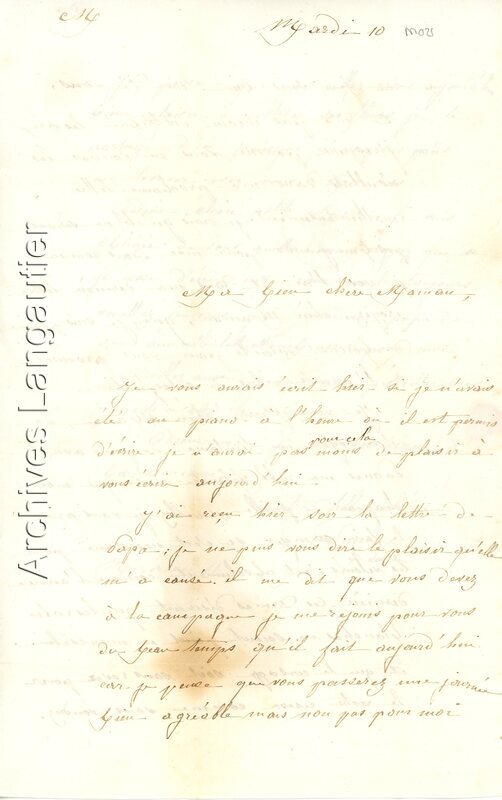 M
Mardi 10
M025
Ma bien chère Maman,
Je vous aurais écrit hier si je n'avais
été au piano à l'heure où il est permis
d'écrire je n'aurai pas pour cela moins de plaisir à
vous écrire aujourd'hui.
J'ai reçu hier soir la lettre de
Papa ; je ne puis vous dire le plaisir qu'elle
m'a causé il me dit que vous
à la campagne je me rejouis pour vous
du beau temps qu'il fait aujourd'hui
car je pense que vous passerez une journée
bien agréable mais non pas pour moi
Archives Langautier